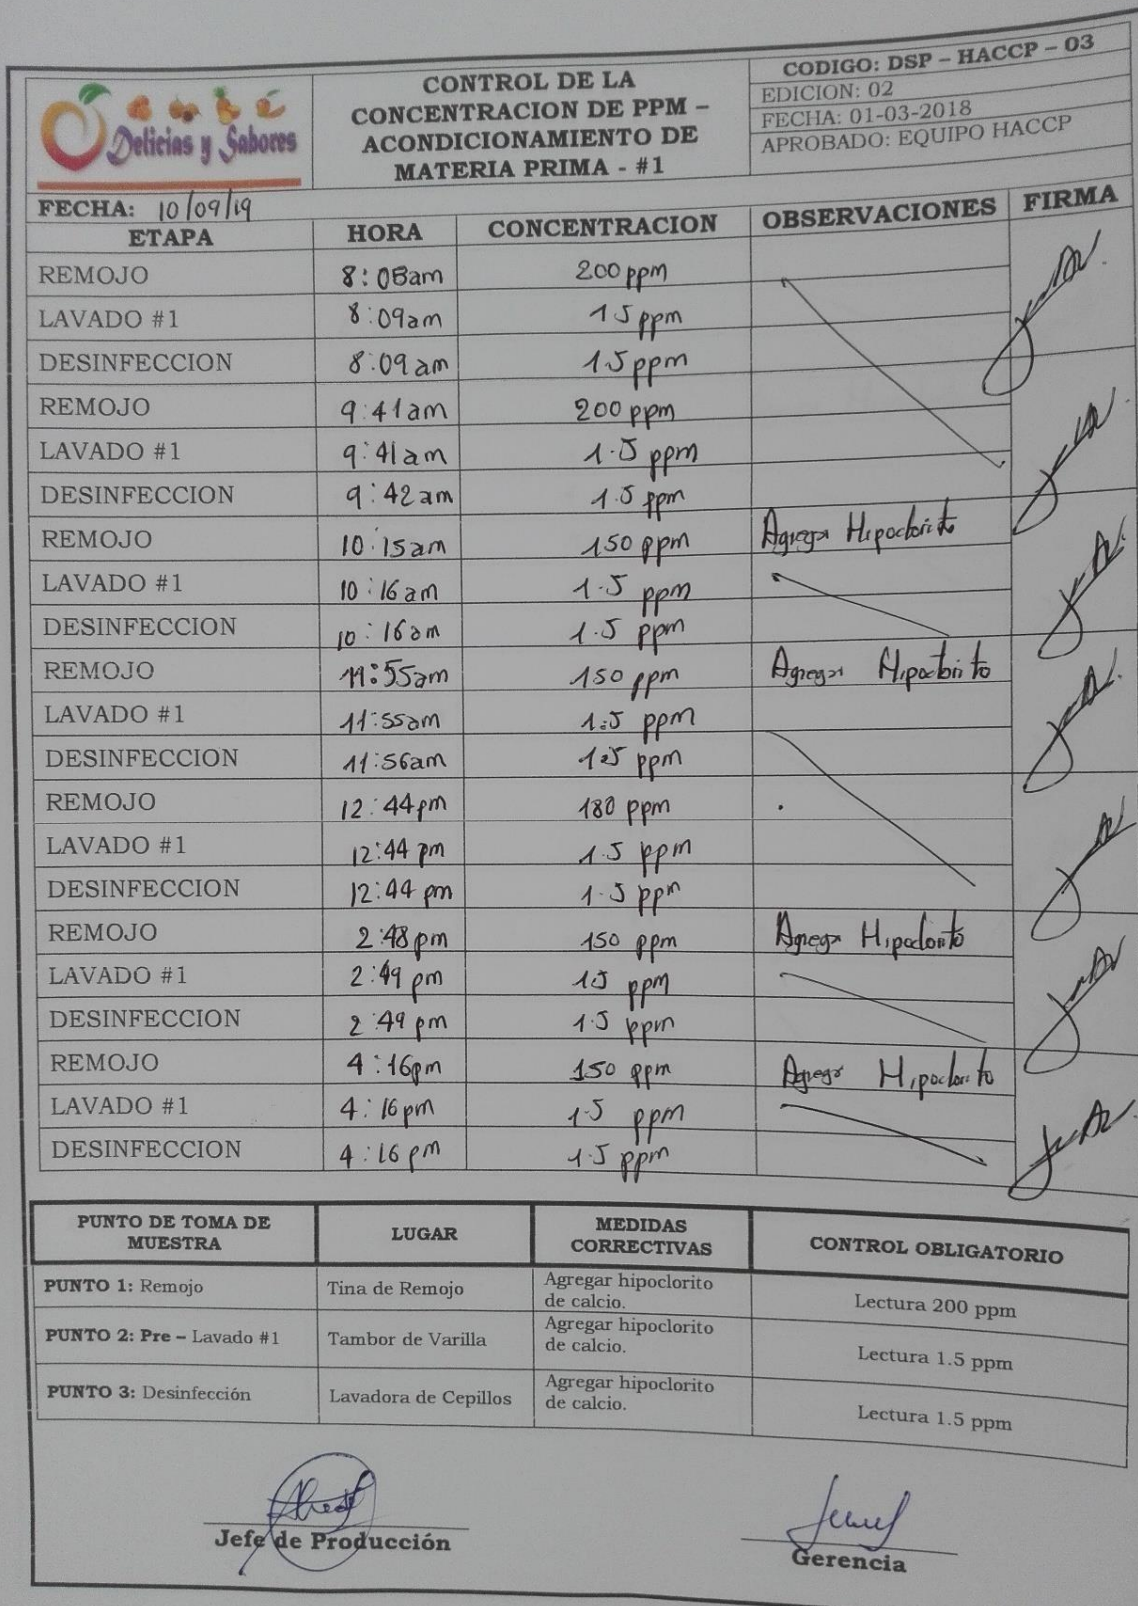 Delicias y Sabores
CONTROL DE LA
CONCENTRACION DE PPM –
ACONDICIONAMIENTO DE
MATERIA PRIMA - #1
CODIGO: DSP – HACCP – 03
EDICION: 02
FECHA: 01-03-2018
APROBADO: EQUIPO HACCP
FECHA: 10/09/19
ETAPA HORA CONCENTRACION OBSERVACIONES FIRMA
REMOJO 8:08am 200 ppm
LAVADO #1 8:09am 1.5 ppm
DESINFECCION 8:09am 1.5 ppm
REMOJO 9:41am 200 ppm
LAVADO #1 9:41am 1.5 ppm
DESINFECCION 9:42am 1.5 ppm
REMOJO 10:15am 150 ppm Agregar Hipoclorito
LAVADO #1 10:16am 1.5 ppm
DESINFECCION 10:16am 1.5 ppm
REMOJO 11:55am 150 ppm Agregar Hipoclorito
LAVADO #1 11:55am 1.5 ppm
DESINFECCION 11:56am 1.5 ppm
REMOJO 12:44pm 180 ppm
LAVADO #1 12:44 pm 1.5 ppm
DESINFECCION 12:44 pm 1.5 ppm
REMOJO 2:48pm 150 ppm Agregar Hipoclorito
LAVADO #1 2:49 pm 1.5 ppm
DESINFECCION 2:49 pm 1.5 ppm
REMOJO 4:16pm 150 ppm Agregar Hipoclorito
LAVADO #1 4:16pm 1.5 ppm
DESINFECCION 4:16pm 1.5 ppm
PUNTO DE TOMA DE MUESTRA LUGAR MEDIDAS CORRECTIVAS CONTROL OBLIGATORIO
PUNTO 1: Remojo Tina de Remojo Agregar hipoclorito de calcio. Lectura 200 ppm
PUNTO 2: Pre – Lavado #1 Tambor de Varilla Agregar hipoclorito de calcio. Lectura 1.5 ppm
PUNTO 3: Desinfección Lavadora de Cepillos Agregar hipoclorito de calcio. Lectura 1.5 ppm
Jefe de Producción
Gerencia